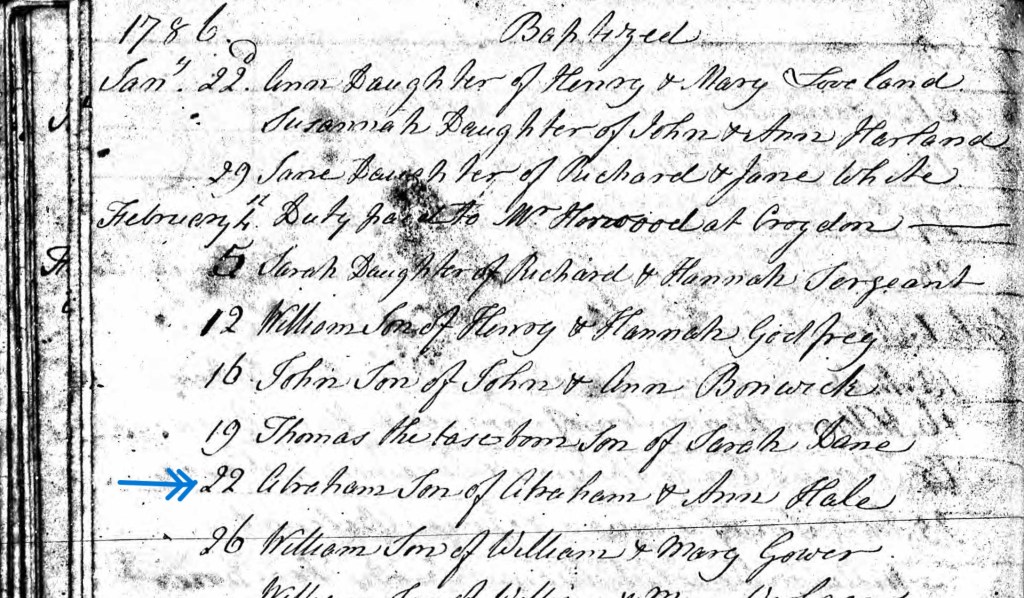 1786. Baptized
Jany. 22d. Ann Daughter of Henry & Mary Loveland.
Susannah Daughter of John & Ann Harland
29 Jane Daughter of Richard & Jane White
February Duty paid to Mr Horwood at Croydon
5 Sarah Daughter of Richard & Hannah Sergeant
12 William Son of Henry & Hannah Godfrey
16 John Son of John & Ann Bonwick
19 Thomas the base born Son of Sarah Dane
22 Abraham Son of Abraham & Ann Hale
26 William Son of William & Mary Gower
William Son of William &